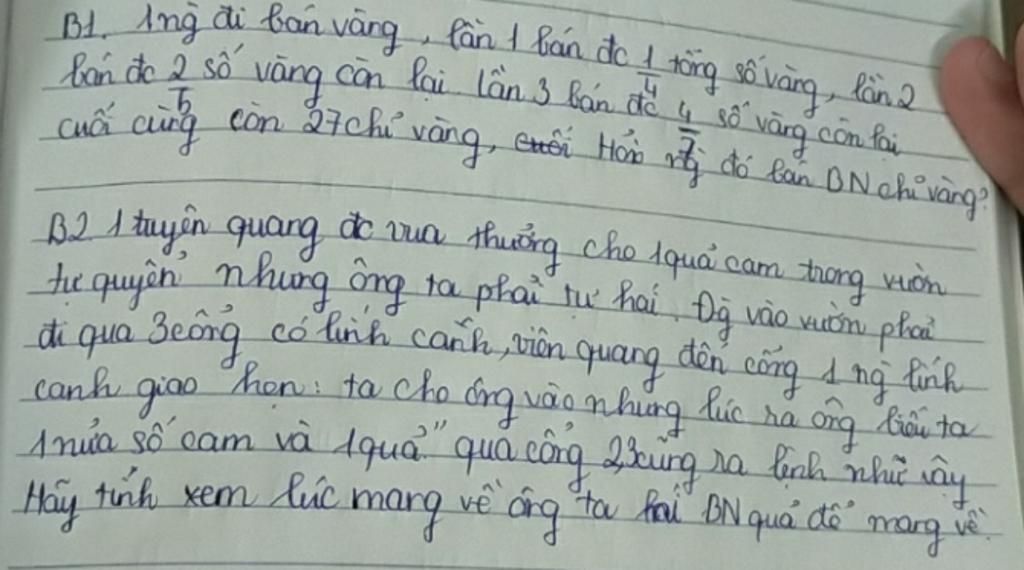 B1. 1ng đi bán vàng, lần 1 bán đc 1/4 tổng số vàng, lần 2
bán đc 2/5 số vàng còn lại lần 3 bán đc 4/7 số vàng còn lại
cuối cùng còn 27 chỉ vàng, cuối Hỏi ng đó bán BN chỉ vàng?
B2 1 tuyên quang đc vua thưởng cho 1 quả cam trong vườn
tư quyền nhưng ông ta phải tự hái. Đg vào vườn phải
đi qua 3 cổng có lính canh, viên quang đến cổng 1 ng lính
canh giao hẹn: ta cho ông vào nhưng lúc ra ông biếu ta
1 nửa số cam và 1 quả" qua cổng 2,3 cũng ra lệnh như vậy
Hãy tính xem lúc mang về ông ta hái BN quả để mang về.